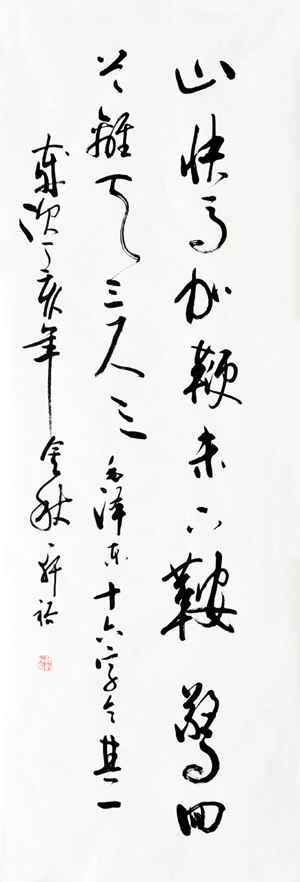 山快马加鞭未下鞍驚回
首離天三尺三毛泽东十六字令其一
歲次丁亥年金秋轩裕